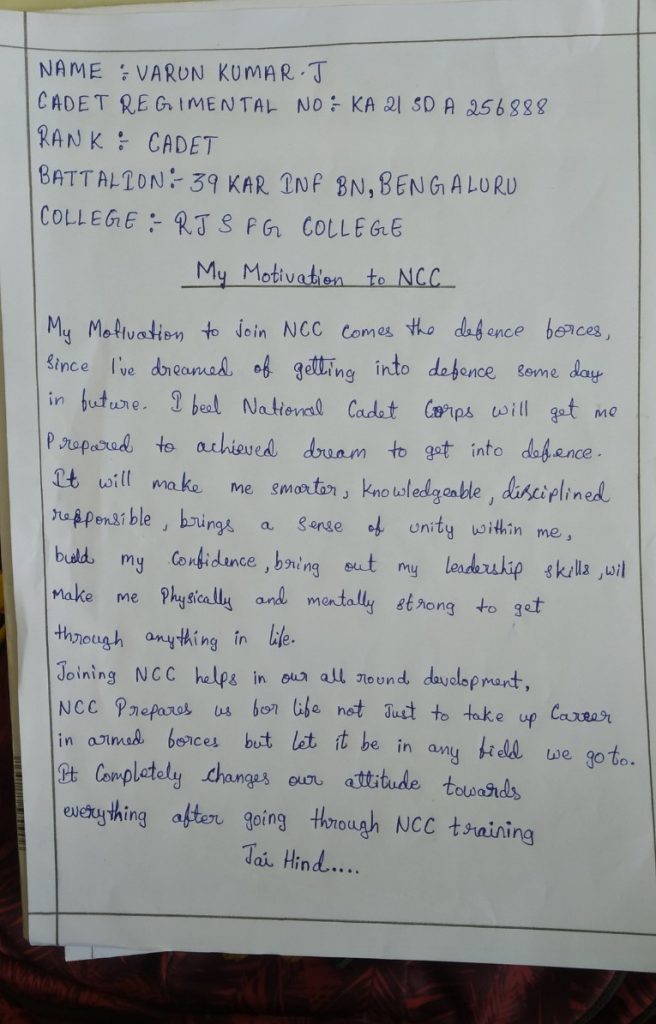 NAME :- VARUN KUMAR.J
CADET REGIMENTAL NO :- KA 21 SD A 256888
RANK :- CADET
BATTALION:- 39 KAR INF BN, BENGALURU
COLLEGE :- RJS FG COLLEGE
My Motivation to NCC
My Motivation to join NCC Comes the defence forces,
Since I've dreamed of getting into defence some day
in future. I feel National Cadet Corps will get me
Prepared to achieved dream to get into defence.
It will make me smarter, knowledgeable, disciplined
responsible, brings a sense of unity within me,
build my Confidence, bring out my leadership skills, will
Make me Physically and mentally strong to get
through anything in life.
Joining NCC helps in our all round development,
NCC Prepares us for life not Just to take up Career
in armed forces but let it be in any field we go to.
It Completely changes our attitude towards
everything after going through NCC training
Jai Hind....